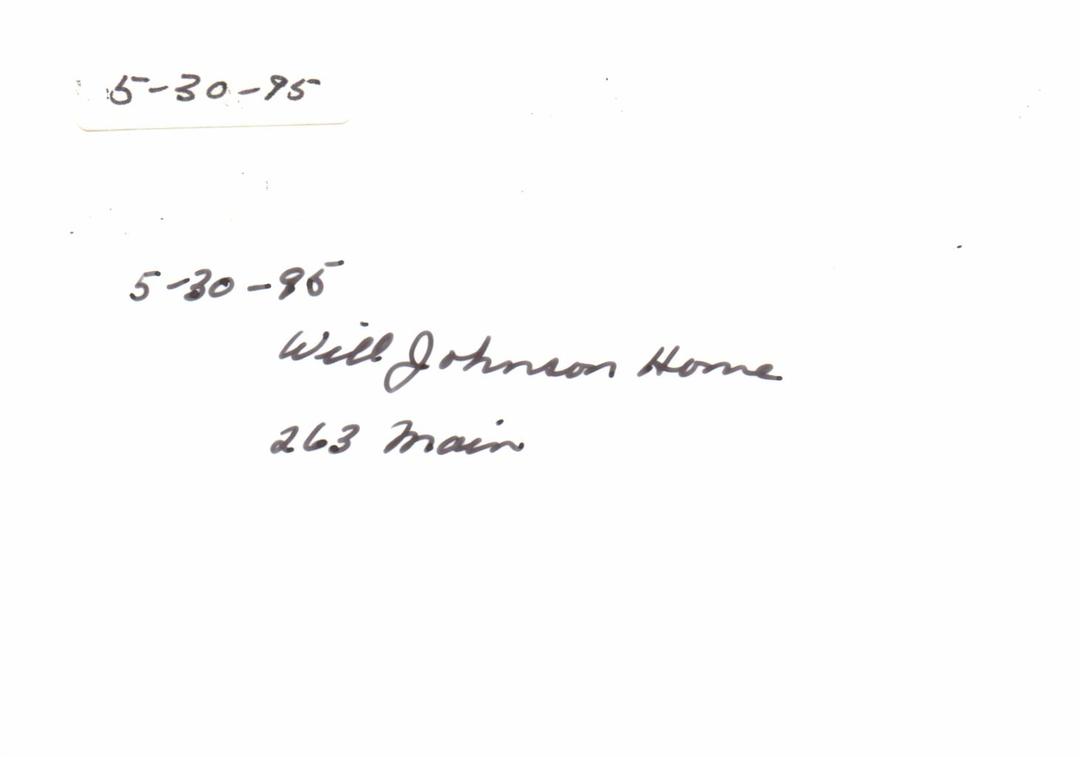 5-30-95
5-30-95
Will Johnson Home
263 Main